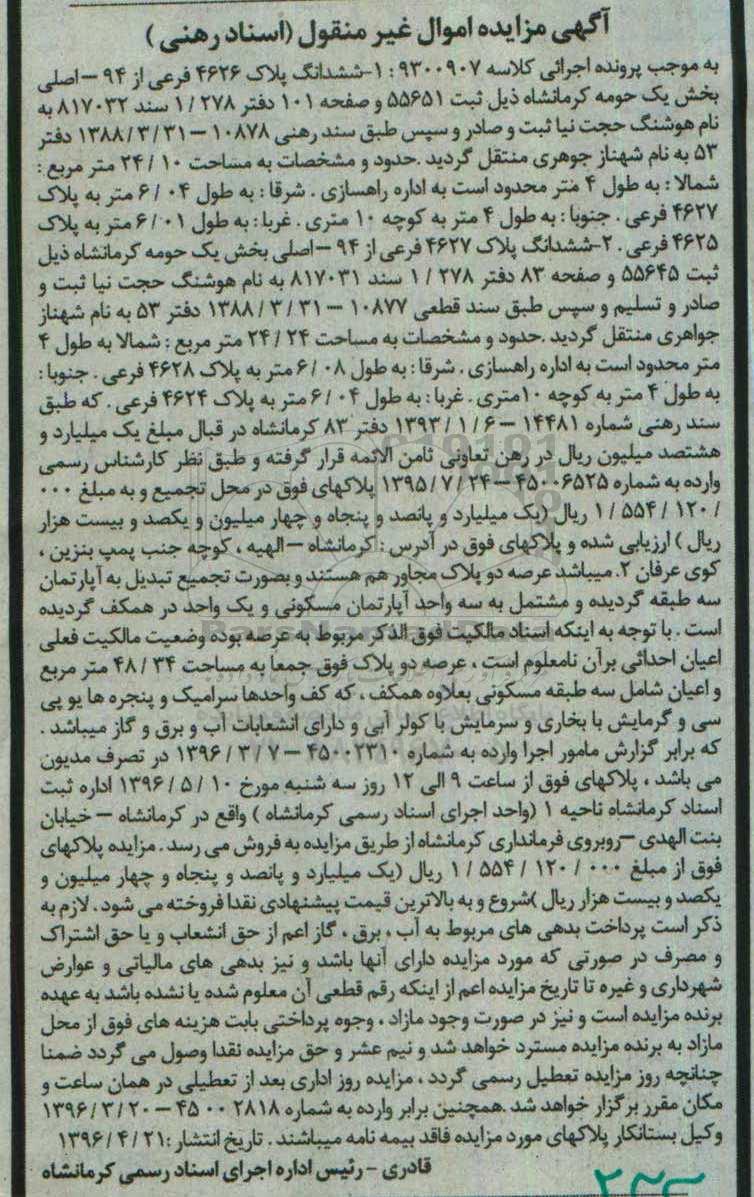 آگهی مزایده اموال غیر منقول (اسناد رهنی)
به موجب پرونده اجرائی کلاسه ۹۳۰۰۹۰۷ : ۱-ششدانگ پلاک ۴۶۲۶ فرعی از ۹۴ – اصلی
بخش یک حومه کرمانشاه ذیل ثبت ۵۵۶۵۱ و صفحه ۱۰۱ دفتر ۲۷۸ / ۱ سند ۸۱۷۰۳۲ به
نام هوشنگ حجت نیا ثبت و صادر و سپس طبق سند رهنی ۱۰۸۷۸ – ۳۱ / ۳ / ۱۳۸۸ دفتر
۵۳ به نام شهناز جوهری منتقل گردید .حدود و مشخصات به مساحت ۱۰ / ۲۴ متر مربع :
شمالا : به طول ۴ متر محدود است به اداره راهسازی . شرقا : به طول ۰۴ / ۶ متر به پلاک
۴۶۲۷ فرعی . جنوبا : به طول ۴ متر به کوچه ۱۰ متری . غربا : به طول ۰۱ / ۶ متر به پلاک
۴۶۲۵ فرعی . ۲-ششدانگ پلاک ۴۶۲۷ فرعی از ۹۴ – اصلی بخش یک حومه کرمانشاه ذیل
ثبت ۵۵۶۴۵ و صفحه ۸۳ دفتر ۲۷۸ / ۱ سند ۸۱۷۰۳۱ به نام هوشنگ حجت نیا ثبت و
صادر و تسلیم و سپس طبق سند قطعی ۱۰۸۷۷ – ۳۱ / ۳ / ۱۳۸۸ دفتر ۵۳ به نام شهناز
جواهری منتقل گردید .حدود و مشخصات به مساحت ۲۴ / ۲۴ متر مربع : شمالا به طول ۴
متر محدود است به اداره راهسازی . شرقا : به طول ۰۸ / ۶ متر به پلاک ۴۶۲۸ فرعی . جنوبا :
به طول ۴ متر به کوچه ۱۰متری . غربا : به طول ۰۴ / ۶ متر به پلاک ۴۶۲۴ فرعی . که طبق
سند رهنی شماره ۱۴۴۸۱ – ۶ / ۱ / ۱۳۹۳ دفتر ۸۳ کرمانشاه در قبال مبلغ یک میلیارد و
هشتصد میلیون ریال در رهن تعاونی ثامن الائمه قرار گرفته و طبق نظر کارشناس رسمی
وارده به شماره ۴۵۰۰۶۵۲۵ – ۲۴ / ۷ / ۱۳۹۵ پلاکهای فوق در محل تجمیع و به مبلغ ۰۰۰
/ ۱۲۰ / ۵۵۴ / ۱ ریال (یک میلیارد و پانصد و پنجاه و چهار میلیون و یکصد و بیست هزار
ریال ) ارزیابی شده و پلاکهای فوق در آدرس : کرمانشاه – الهیه ، کوچه جنب پمپ بنزین ،
کوی عرفان ۲. میباشد عرصه دو پلاک مجاور هم هستند و بصورت تجمیع تبدیل به آپارتمان
سه طبقه گردیده و مشتمل به سه واحد آپارتمان مسکونی و یک واحد در همکف گردیده
است . با توجه به اینکه اسناد مالکیت فوق الذکر مربوط به عرصه بوده وضعیت مالکیت فعلی
اعیان احداثی برآن نامعلوم است ، عرصه دو پلاک فوق جمعا به مساحت ۳۴ / ۴۸ متر مربع
و اعیان شامل سه طبقه مسکونی بعلاوه همکف ، که کف واحدها سرامیک و پنجره ها یو پی
سی و گرمایش با بخاری و سرمایش با کولر آبی و دارای انشعابات آب و برق و گاز میباشد .
که برابر گزارش مامور اجرا وارده به شماره ۴۵۰۰۲۳۱۰ – ۷ / ۳ / ۱۳۹۶ در تصرف مدیون
می باشد ، پلاکهای فوق از ساعت ۹ الی ۱۲ روز سه شنبه مورخ ۱۰ / ۵ / ۱۳۹۶ اداره ثبت
اسناد کرمانشاه ناحیه ۱ (واحد اجرای اسناد رسمی کرمانشاه ) واقع در کرمانشاه – خیابان
بنت الهدی –روبروی فرمانداری کرمانشاه از طریق مزایده به فروش می رسد . مزایده پلاکهای
فوق از مبلغ ۰۰۰ / ۱۲۰ / ۵۵۴ / ۱ ریال (یک میلیارد و پانصد و پنجاه و چهار میلیون و
یکصد و بیست هزار ریال )شروع و به بالاترین قیمت پیشنهادی نقدا فروخته می شود . لازم به
ذکر است پرداخت بدهی های مربوط به آب ، برق ، گاز اعم از حق انشعاب و یا حق اشتراک
و مصرف در صورتی که مورد مزایده دارای آنها باشد و نیز بدهی های مالیاتی و عوارض
شهرداری و غیره تا تاریخ مزایده اعم از اینکه رقم قطعی آن معلوم شده یا نشده باشد به عهده
برنده مزایده است و نیز در صورت وجود مازاد ، وجوه پرداختی بابت هزینه های فوق از محل
مازاد به برنده مزایده مسترد خواهد شد و نیم عشر و حق مزایده نقدا وصول می گردد ضمنا
چنانچه روز مزایده تعطیل رسمی گردد ، مزایده روز اداری بعد از تعطیلی در همان ساعت و
مکان مقرر برگزار خواهد شد .همچنین برابر وارده به شماره ۲۸۱۸ ۰۰ ۴۵ – ۲۰ / ۳ / ۱۳۹۶
وکیل بستانکار پلاکهای مورد مزایده فاقد بیمه نامه میباشند . تاریخ انتشار :۲۱ / ۴ / ۱۳۹۶
قادری – رئیس اداره اجرای اسناد رسمی کرمانشاه